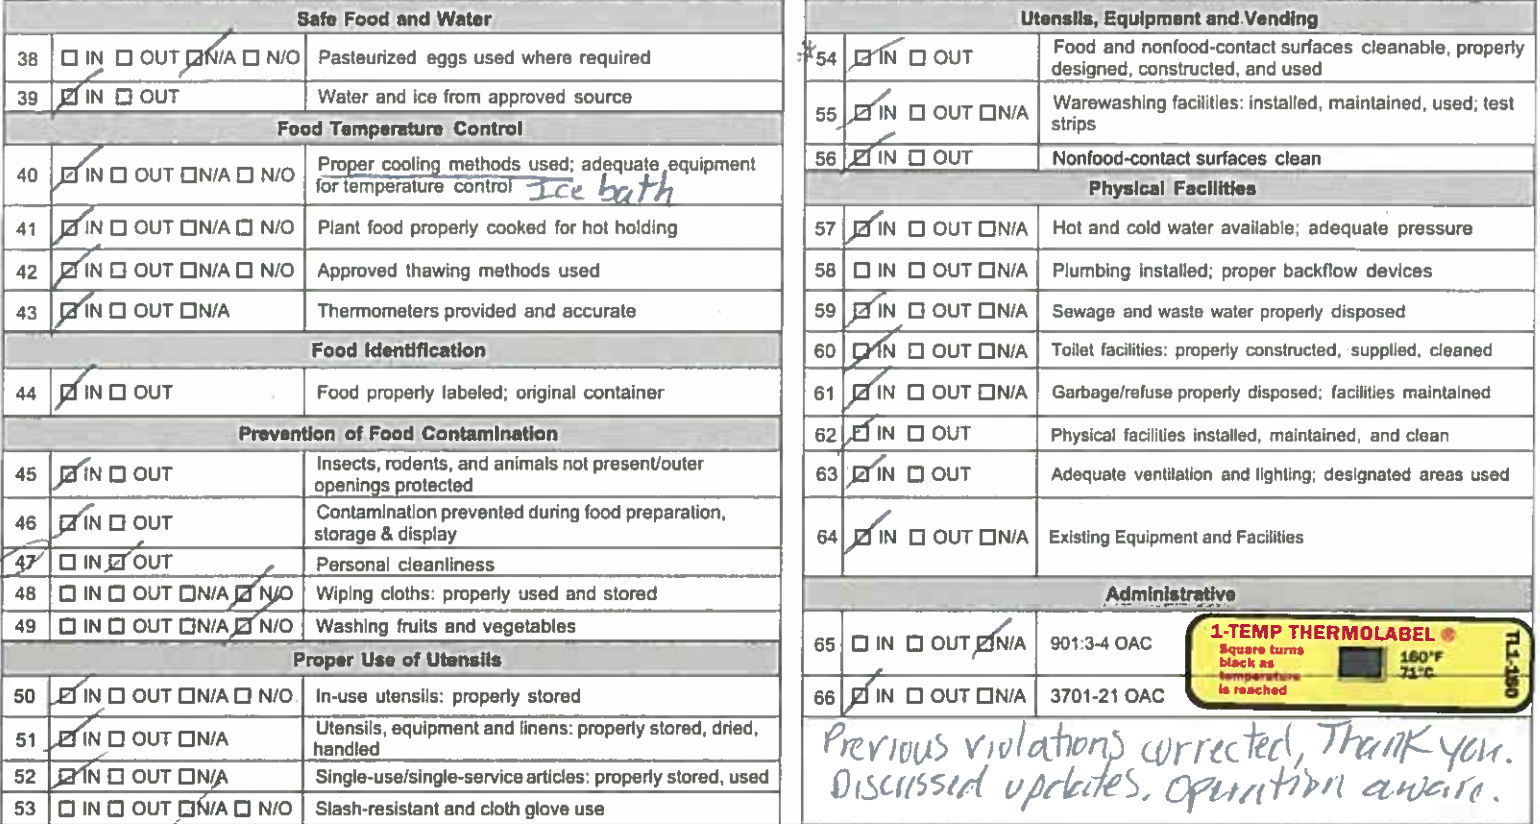 Safe Food and Water
38 ☐ IN ☐ OUT ☑ N/A ☐ N/O Pasteurized eggs used where required
39 ☑ IN ☐ OUT Water and ice from approved source
Food Temperature Control
40 ☑ IN ☐ OUT ☐ N/A ☐ N/O Proper cooling methods used; adequate equipment
for temperature control Ice bath
41 ☑ IN ☐ OUT ☐ N/A ☐ N/O Plant food properly cooked for hot holding
42 ☑ IN ☐ OUT ☐ N/A ☐ N/O Approved thawing methods used
43 ☑ IN ☐ OUT ☐ N/A Thermometers provided and accurate
Food Identification
44 ☑ IN ☐ OUT Food properly labeled; original container
Prevention of Food Contamination
45 ☑ IN ☐ OUT Insects, rodents, and animals not present/outer
openings protected
46 ☑ IN ☐ OUT Contamination prevented during food preparation,
storage & display
47 ☐ IN ☑ OUT Personal cleanliness
48 ☐ IN ☐ OUT ☐ N/A ☑ N/O Wiping cloths: properly used and stored
49 ☐ IN ☐ OUT ☐ N/A ☑ N/O Washing fruits and vegetables
Proper Use of Utensils
50 ☑ IN ☐ OUT ☐ N/A ☐ N/O In-use utensils: properly stored
51 ☑ IN ☐ OUT ☐ N/A Utensils, equipment and linens: properly stored, dried,
handled
52 ☑ IN ☐ OUT ☐ N/A Single-use/single-service articles: properly stored, used
53 ☐ IN ☐ OUT ☑ N/A ☐ N/O Slash-resistant and cloth glove use
Utensils, Equipment and Vending
*54 ☑ IN ☐ OUT Food and nonfood-contact surfaces cleanable, properly
designed, constructed, and used
55 ☑ IN ☐ OUT ☐ N/A Warewashing facilities: installed, maintained, used; test
strips
56 ☑ IN ☐ OUT Nonfood-contact surfaces clean
Physical Facilities
57 ☑ IN ☐ OUT ☐ N/A Hot and cold water available; adequate pressure
58 ☐ IN ☐ OUT ☐ N/A Plumbing installed; proper backflow devices
59 ☑ IN ☐ OUT ☐ N/A Sewage and waste water properly disposed
60 ☑ IN ☐ OUT ☐ N/A Toilet facilities: properly constructed, supplied, cleaned
61 ☑ IN ☐ OUT ☐ N/A Garbage/refuse properly disposed; facilities maintained
62 ☑ IN ☐ OUT Physical facilities installed, maintained, and clean
63 ☑ IN ☐ OUT Adequate ventilation and lighting; designated areas used
64 ☑ IN ☐ OUT ☐ N/A Existing Equipment and Facilities
Administrative
65 ☐ IN ☐ OUT ☑ N/A 901:3-4 OAC
66 ☑ IN ☐ OUT ☐ N/A 3701-21 OAC
1-TEMP THERMOLABEL ®
Square turns
black as
temperature
is reached
160°F
71°C
TL1-160
Previous violations corrected, Thank you.
Discussed updates. Operation aware.